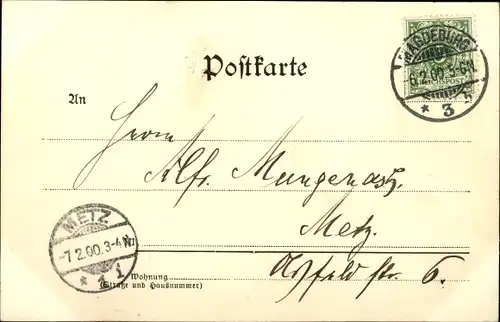 MAGDEBURG
6.2.00.3-5N.
* 3 h
REICHSPOST
Postkarte
An
Herrn
Alfr. Mungenast,
Metz.
str. 6.
METZ
7 2.00.3-4N
* 1 i
Wohnung
(Straße und Hausnummer)